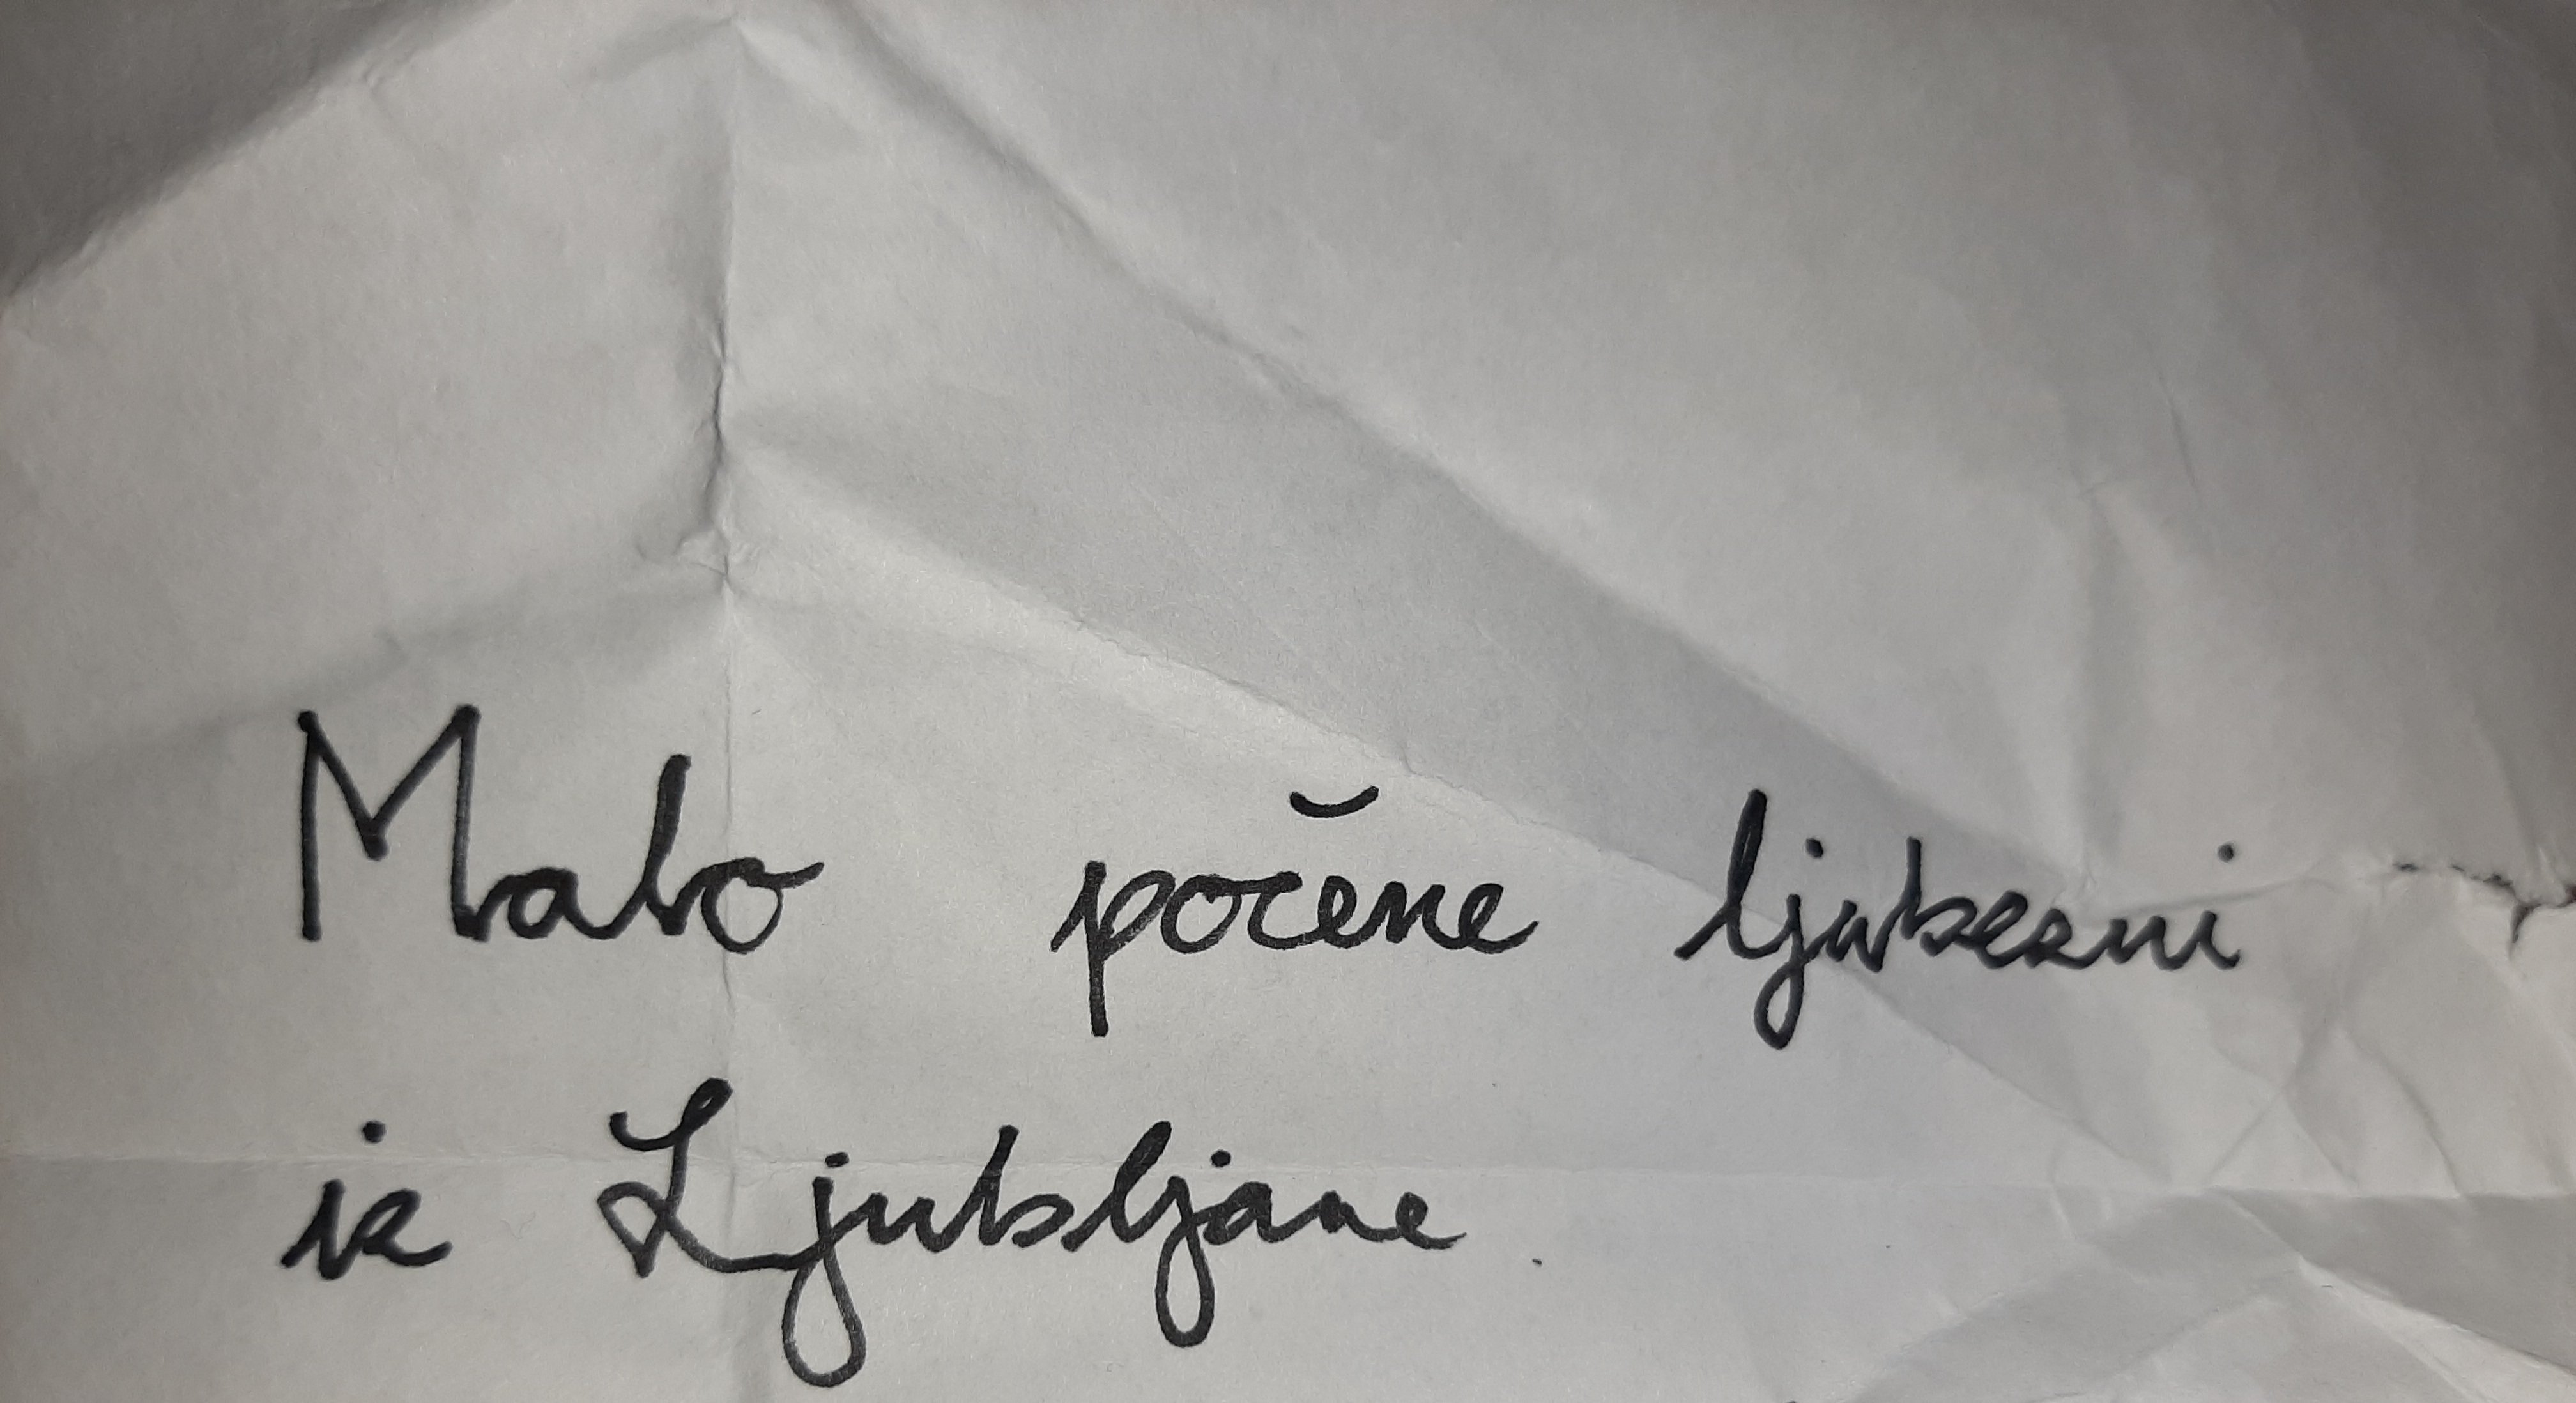 Malo počene ljubezni
iz Ljubljane.